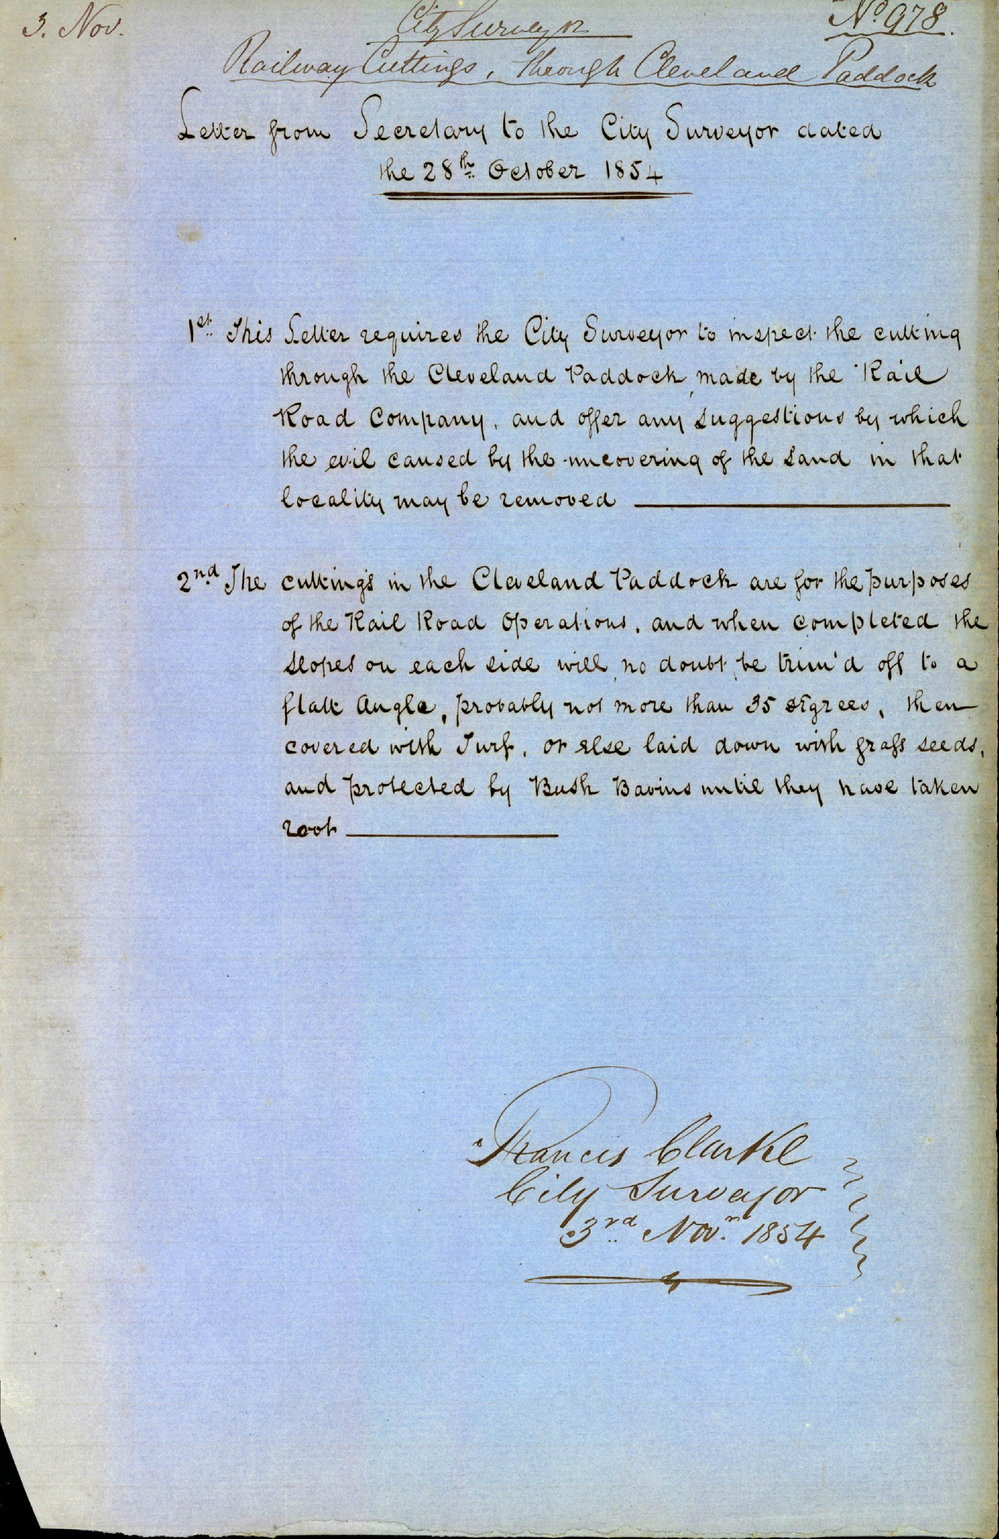 3. Nov.
City Surveyor
No 978.
Railway Cuttings, through Cleveland Paddock
Letter from Secretary to the City Surveyor dated
the 28th October 1854
1st This Letter requires the City Surveyor to inspect the cutting
through the Cleveland Paddock, made by the Rail
Road Company, and offer any suggestions by which
the evil caused by the uncovering of the Sand in that
locality may be removed
2nd The cuttings in the Cleveland Paddock are for the purposes
of the Rail Road Operations, and when completed the
slopes on each side will no doubt be trim'd off to a
flatt Angle, probably not more than 35 degrees, then
covered with Turf, or else laid down with grass seeds,
and protected by Bush Bavins until they have taken
root
Francis Clarke
City Surveyor
3rd Novr 1854